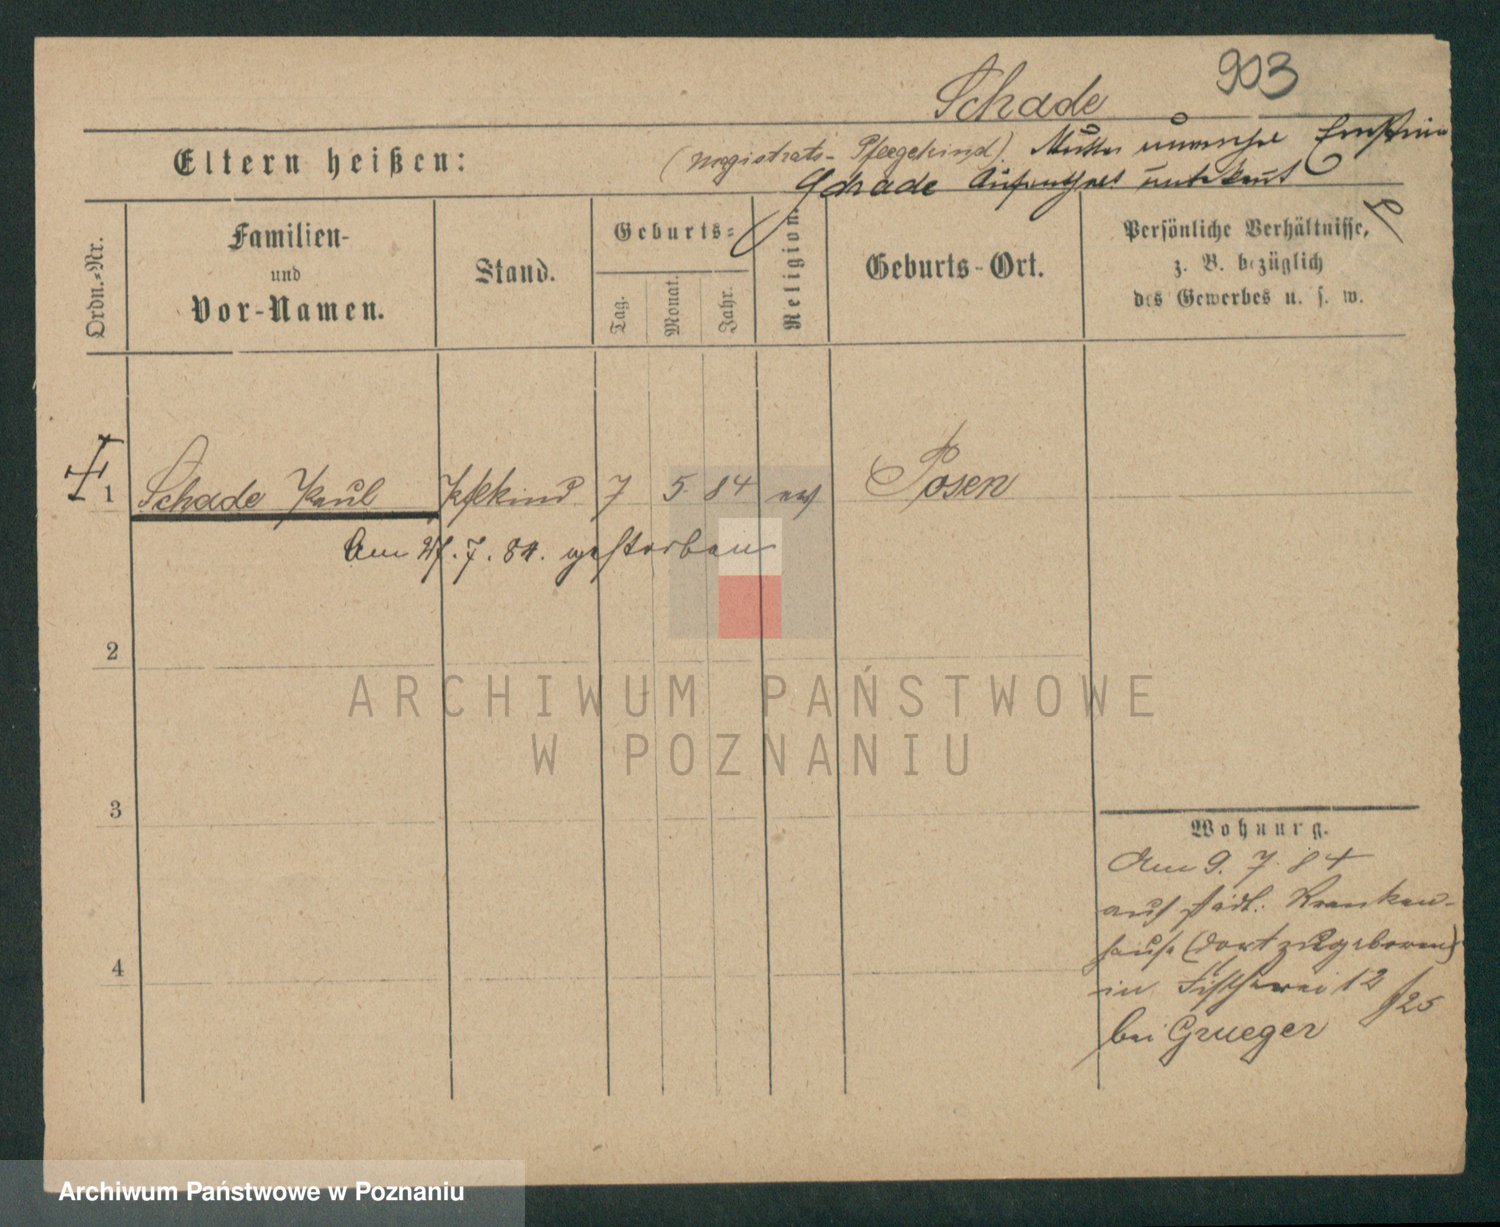 903
Schade
Eltern heißen: (Magistrats-Pflegekind). Mutter unversehel Ernstine
Schade Aufenthalt unbekannt
Ordn.-Nr.
Familien-
und
Vor-Namen.
Stand.
Geburts-
Tag.
Monat.
Jahr.
Religion.
Geburts-Ort.
Persönliche Verhältnisse,
z. B. bezüglich
des Gewerbes u. s. w.
1 Schade Paul Pflkind 7 5. 84 ev Posen
Am 27.7.84. gestorben
2
3
4
Wohnung.
Am 9. 7. 84
aus städt. Kranken-
hause (dort zugeboren)
in Fischerei 12
f 25
bei Grueger
ARCHIWUM PAŃSTWOWE
W POZNANIU
Archiwum Państwowe w Poznaniu